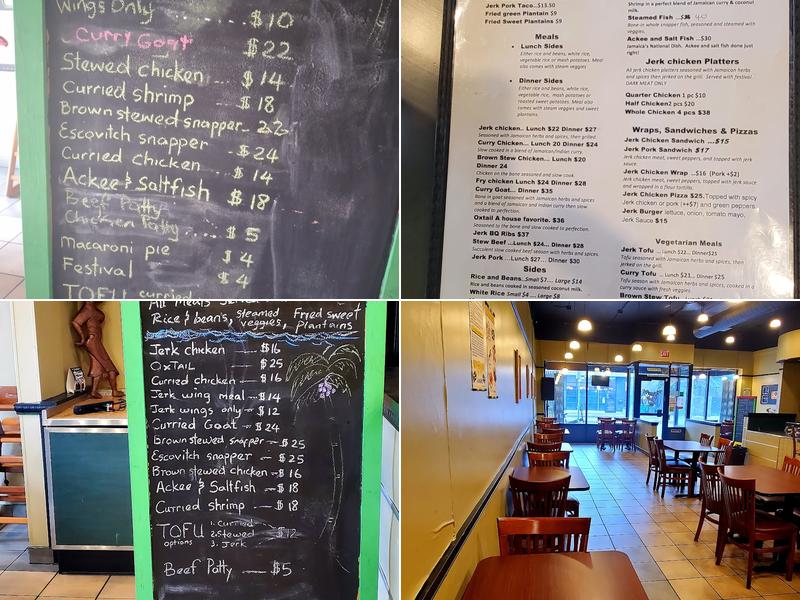 Wings Only ... $10
Curry Goat $22
Stewed chicken ... $14
Curried shrimp ... $18
Brown stewed snapper - 22
Escovitch snapper $24
Curried chicken ... $14
Ackee & Saltfish $18
Beef Patty
Chicken Patty ..... $5
macaroni pie $4
Festival $4
TOFU curried
Jerk Pork Taco...$13.50
Fried green Plantain $9
Fried Sweet Plantains $9
Meals
• Lunch Sides
Either rice and beans, white rice,
vegetable rice or mash potatoes. Meal
also comes with steam veggies
• Dinner Sides
Either rice and beans, white rice,
vegetable rice, mash potatoes or
toasted sweet potatoes. Meal also
comes with steam veggies and sweet
plantains.
Jerk chicken... Lunch $22 Dinner $27
Seasoned with Jamaican herbs and spices, then grilled.
Curry Chicken... Lunch 20 Dinner $24
Slow cooked in a blend of Jamaican/Indian curry.
Brown Stew Chicken... Lunch $20
Dinner 24
Chicken on the bone seasoned and slow cook.
Fry chicken Lunch $24 Dinner $28
Curry Goat... Dinner $35
Bone in goat seasoned with Jamaican herbs and spices
and a blend of Jamaican and Indian curry then slow
cooked to perfection.
Oxtail A house favorite. $36
Seasoned to the bone and slow cooked to perfection.
Jerk BQ Ribs $37
Stew Beef ...Lunch $24... Dinner $28
Succulent slow cooked beef season with herbs and spices.
Jerk Pork ...Lunch $27... Dinner $30
Sides
Rice and Beans..Small $7... Large $14
Rice and beans cooked in seasoned coconut milk.
White Rice Small $4 ... Large $8
Shrimp in a perfect blend of Jamaican curry & coconut
milk.
Steamed Fish ...$ 40
Bone-in whole snapper fish, seasoned and steamed with
veggies.
Ackee and Salt Fish ...$30
Jamaica's National Dish. Ackee and salt fish done just
right!
Jerk chicken Platters
All jerk chicken platters seasoned with Jamaican herbs
and spices then jerked on the grill. Served with festival.
DARK MEAT ONLY
Quarter Chicken 1 pc $10
Half Chicken 2 pcs $20
Whole Chicken 4 pcs $38
Wraps, Sandwiches & Pizzas
Jerk Chicken Sandwich ...$15
Jerk Pork Sandwich $17
Jerk chicken meat, sweet peppers, and topped with jerk
sauce.
Jerk Chicken Wrap ...$16 (Pork +$2)
Jerk chicken meat, sweet peppers, topped with jerk sauce
and wrapped in a flour tortilla.
Jerk Chicken Pizza $25. Topped with spicy
Jerk chicken or pork (++$7) and green peppers
Jerk Burger lettuce, onion, tomato, mayo,
Jerk Sauce $15
Vegetarian Meals
Jerk Tofu ... Lunch $22... Dinner $25
Tofu seasoned with Jamaican herbs and spices, then
jerked on the grill.
Curry Tofu ... Lunch $21... Dinner $25
Tofu season with Jamaican herbs and spices, cooked in
a curry sauce with fresh veggies.
Brown Stew Tofu
All Meals Served
Rice & beans, steamed Fried sweet
veggies, plantains
Jerk chicken — $16
OxTAIL — $25
Curried chicken — $16
Jerk wing meal — $14
Jerk wings only — $12
Curried Goat — $24
Brown stewed snapper — $25
Escovitch snapper — $25
Brown stewed chicken — $16
Ackee & Saltfish — $18
Curried shrimp — $18
TOFU 1. curried
options 2. stewed — $12
3. Jerk
Beef Patty — $5
EXIT